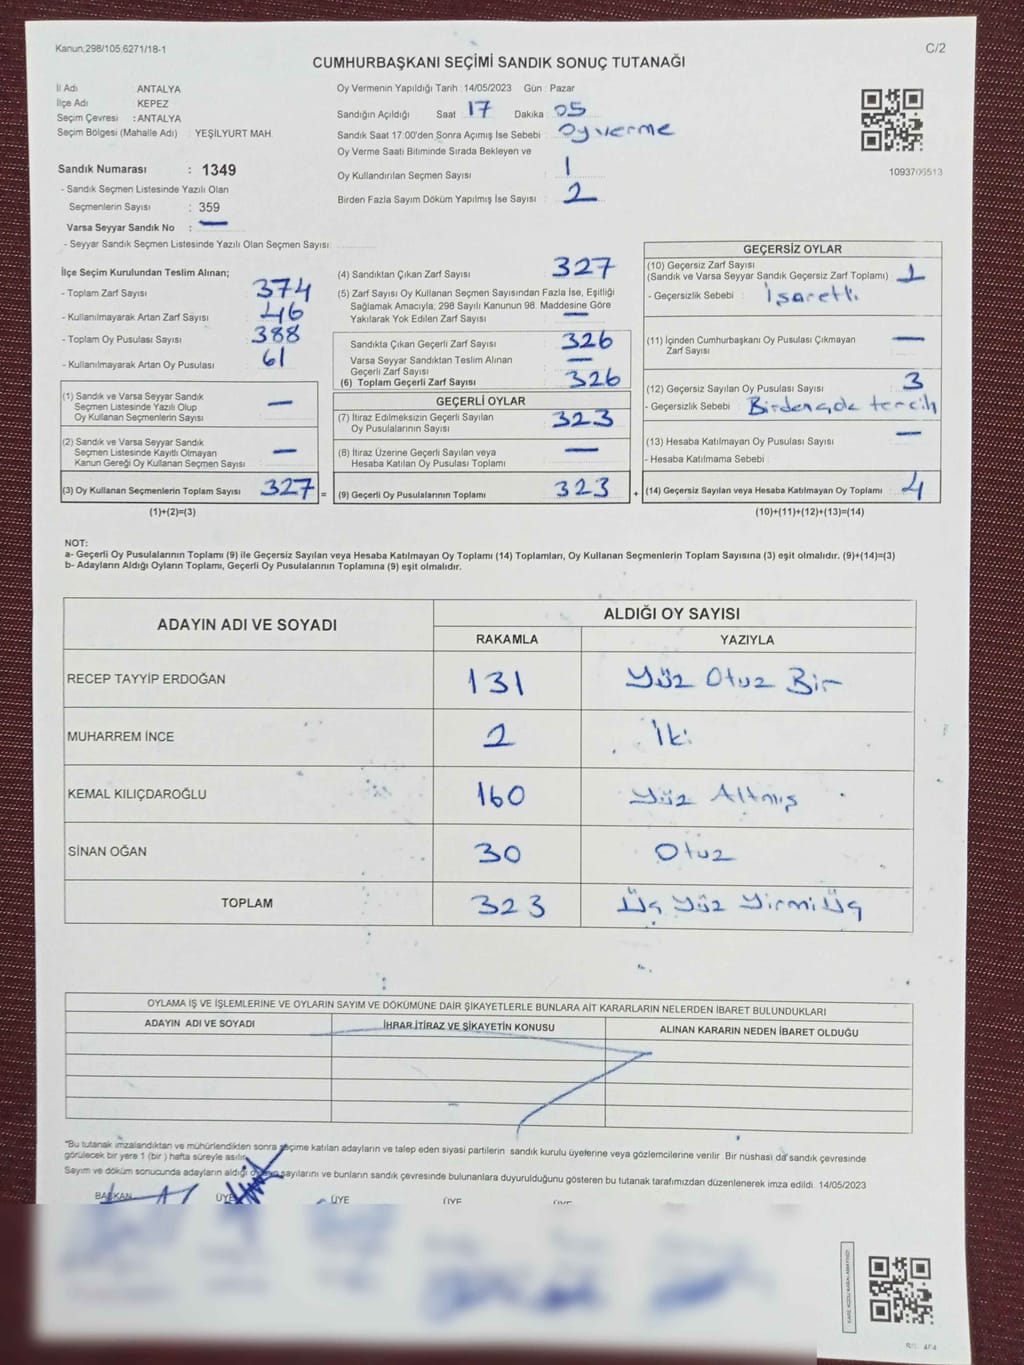 Kanun;298/105,6271/18-1
C/2
CUMHURBAŞKANI SEÇİMİ SANDIK SONUÇ TUTANAĞI
İl Adı ANTALYA
İlçe Adı KEPEZ
Seçim Çevresi : ANTALYA
Seçim Bölgesi (Mahalle Adı) : YEŞİLYURT MAH.
Sandık Numarası : 1349
- Sandık Seçmen Listesinde Yazılı Olan
Seçmenlerin Sayısı : 359
Varsa Seyyar Sandık No : —
- Seyyar Sandık Seçmen Listesinde Yazılı Olan Seçmen Sayısı:
Oy Vermenin Yapıldığı Tarih : 14/05/2023 Gün : Pazar
Sandığın Açıldığı Saat 17 Dakika 05
Sandık Saat 17:00'den Sonra Açımış İse Sebebi : oy verme
Oy Verme Saati Bitiminde Sırada Bekleyen ve
Oy Kullandırılan Seçmen Sayısı 1
Birden Fazla Sayım Döküm Yapılmış İse Sayısı : 2
1093706513
İlçe Seçim Kurulundan Teslim Alınan;
- Toplam Zarf Sayısı : 374
- Kullanılmayarak Artan Zarf Sayısı : 46
- Toplam Oy Pusulası Sayısı : 388
- Kullanılmayarak Artan Oy Pusulası : 61
(1) Sandık ve Varsa Seyyar Sandık
Seçmen Listesinde Yazılı Olup
Oy Kullanan Seçmenlerin Sayısı —
(2) Sandık ve Varsa Seyyar Sandık
Seçmen Listesinde Kayıtlı Olmayan
Kanun Gereği Oy Kullanan Seçmen Sayısı —
(3) Oy Kullanan Seçmenlerin Toplam Sayısı 327 =
(1)+(2)=(3)
(4) Sandıktan Çıkan Zarf Sayısı : 327
(5) Zarf Sayısı Oy Kullanan Seçmen Sayısından Fazla İse, Eşitliği
Sağlamak Amacıyla; 298 Sayılı Kanunun 98. Maddesine Göre
Yakılarak Yok Edilen Zarf Sayısı —
Sandıkta Çıkan Geçerli Zarf Sayısı : 326
Varsa Seyyar Sandıktan Teslim Alınan
Geçerli Zarf Sayısı —
(6) Toplam Geçerli Zarf Sayısı : 326
GEÇERLİ OYLAR
(7) İtiraz Edilmeksizin Geçerli Sayılan
Oy Pusulalarının Sayısı : 323
(8) İtiraz Üzerine Geçerli Sayılan veya
Hesaba Katılan Oy Pusulası Toplamı —
(9) Geçerli Oy Pusulalarının Toplamı 323 +
GEÇERSİZ OYLAR
(10) Geçersiz Zarf Sayısı
(Sandık ve Varsa Seyyar Sandık Geçersiz Zarf Toplamı) : 1
- Geçersizlik Sebebi : İşaretli
(11) İçinden Cumhurbaşkanı Oy Pusulası Çıkmayan
Zarf Sayısı —
(12) Geçersiz Sayılan Oy Pusulası Sayısı : 3
- Geçersizlik Sebebi : Birden çok tercih
(13) Hesaba Katılmayan Oy Pusulası Sayısı : —
- Hesaba Katılmama Sebebi :
(14) Geçersiz Sayılan veya Hesaba Katılmayan Oy Toplamı : 4
(10)+(11)+(12)+(13)=(14)
NOT:
a- Geçerli Oy Pusulalarının Toplamı (9) ile Geçersiz Sayılan veya Hesaba Katılmayan Oy Toplamı (14) Toplamları, Oy Kullanan Seçmenlerin Toplam Sayısına (3) eşit olmalıdır. (9)+(14)=(3)
b- Adayların Aldığı Oyların Toplamı, Geçerli Oy Pusulalarının Toplamına (9) eşit olmalıdır.
ADAYIN ADI VE SOYADI ALDIĞI OY SAYISI
RAKAMLA YAZIYLA
RECEP TAYYİP ERDOĞAN 131 Yüz Otuz Bir
MUHARREM İNCE 2 İki
KEMAL KILIÇDAROĞLU 160 Yüz Altmış
SİNAN OĞAN 30 Otuz
TOPLAM 323 Üç Yüz Yirmi Üç
OYLAMA İŞ VE İŞLEMLERİNE VE OYLARIN SAYIM VE DÖKÜMÜNE DAİR ŞİKAYETLERLE BUNLARA AİT KARARLARIN NELERDEN İBARET BULUNDUKLARI
ADAYIN ADI VE SOYADI İHRAR,İTİRAZ VE ŞİKAYETİN KONUSU ALINAN KARARIN NEDEN İBARET OLDUĞU
"Bu tutanak imzalandıktan ve mühürlendikten sonra seçime katılan adayların ve talep eden siyasi partilerin sandık kurulu üyelerine veya gözlemcilerine verilir. Bir nüshası da sandık çevresinde
görülecek bir yere 1 (bir ) hafta süreyle asılır.
Sayım ve döküm sonucunda adayların aldığı sayılarını ve bunların sandık çevresinde bulunanlara duyurulduğunu gösteren bu tutanak tarafımızdan düzenlenerek imza edildi. 14/05/2023
BAŞKAN ÜYE ÜYE ÜYE ÜYE